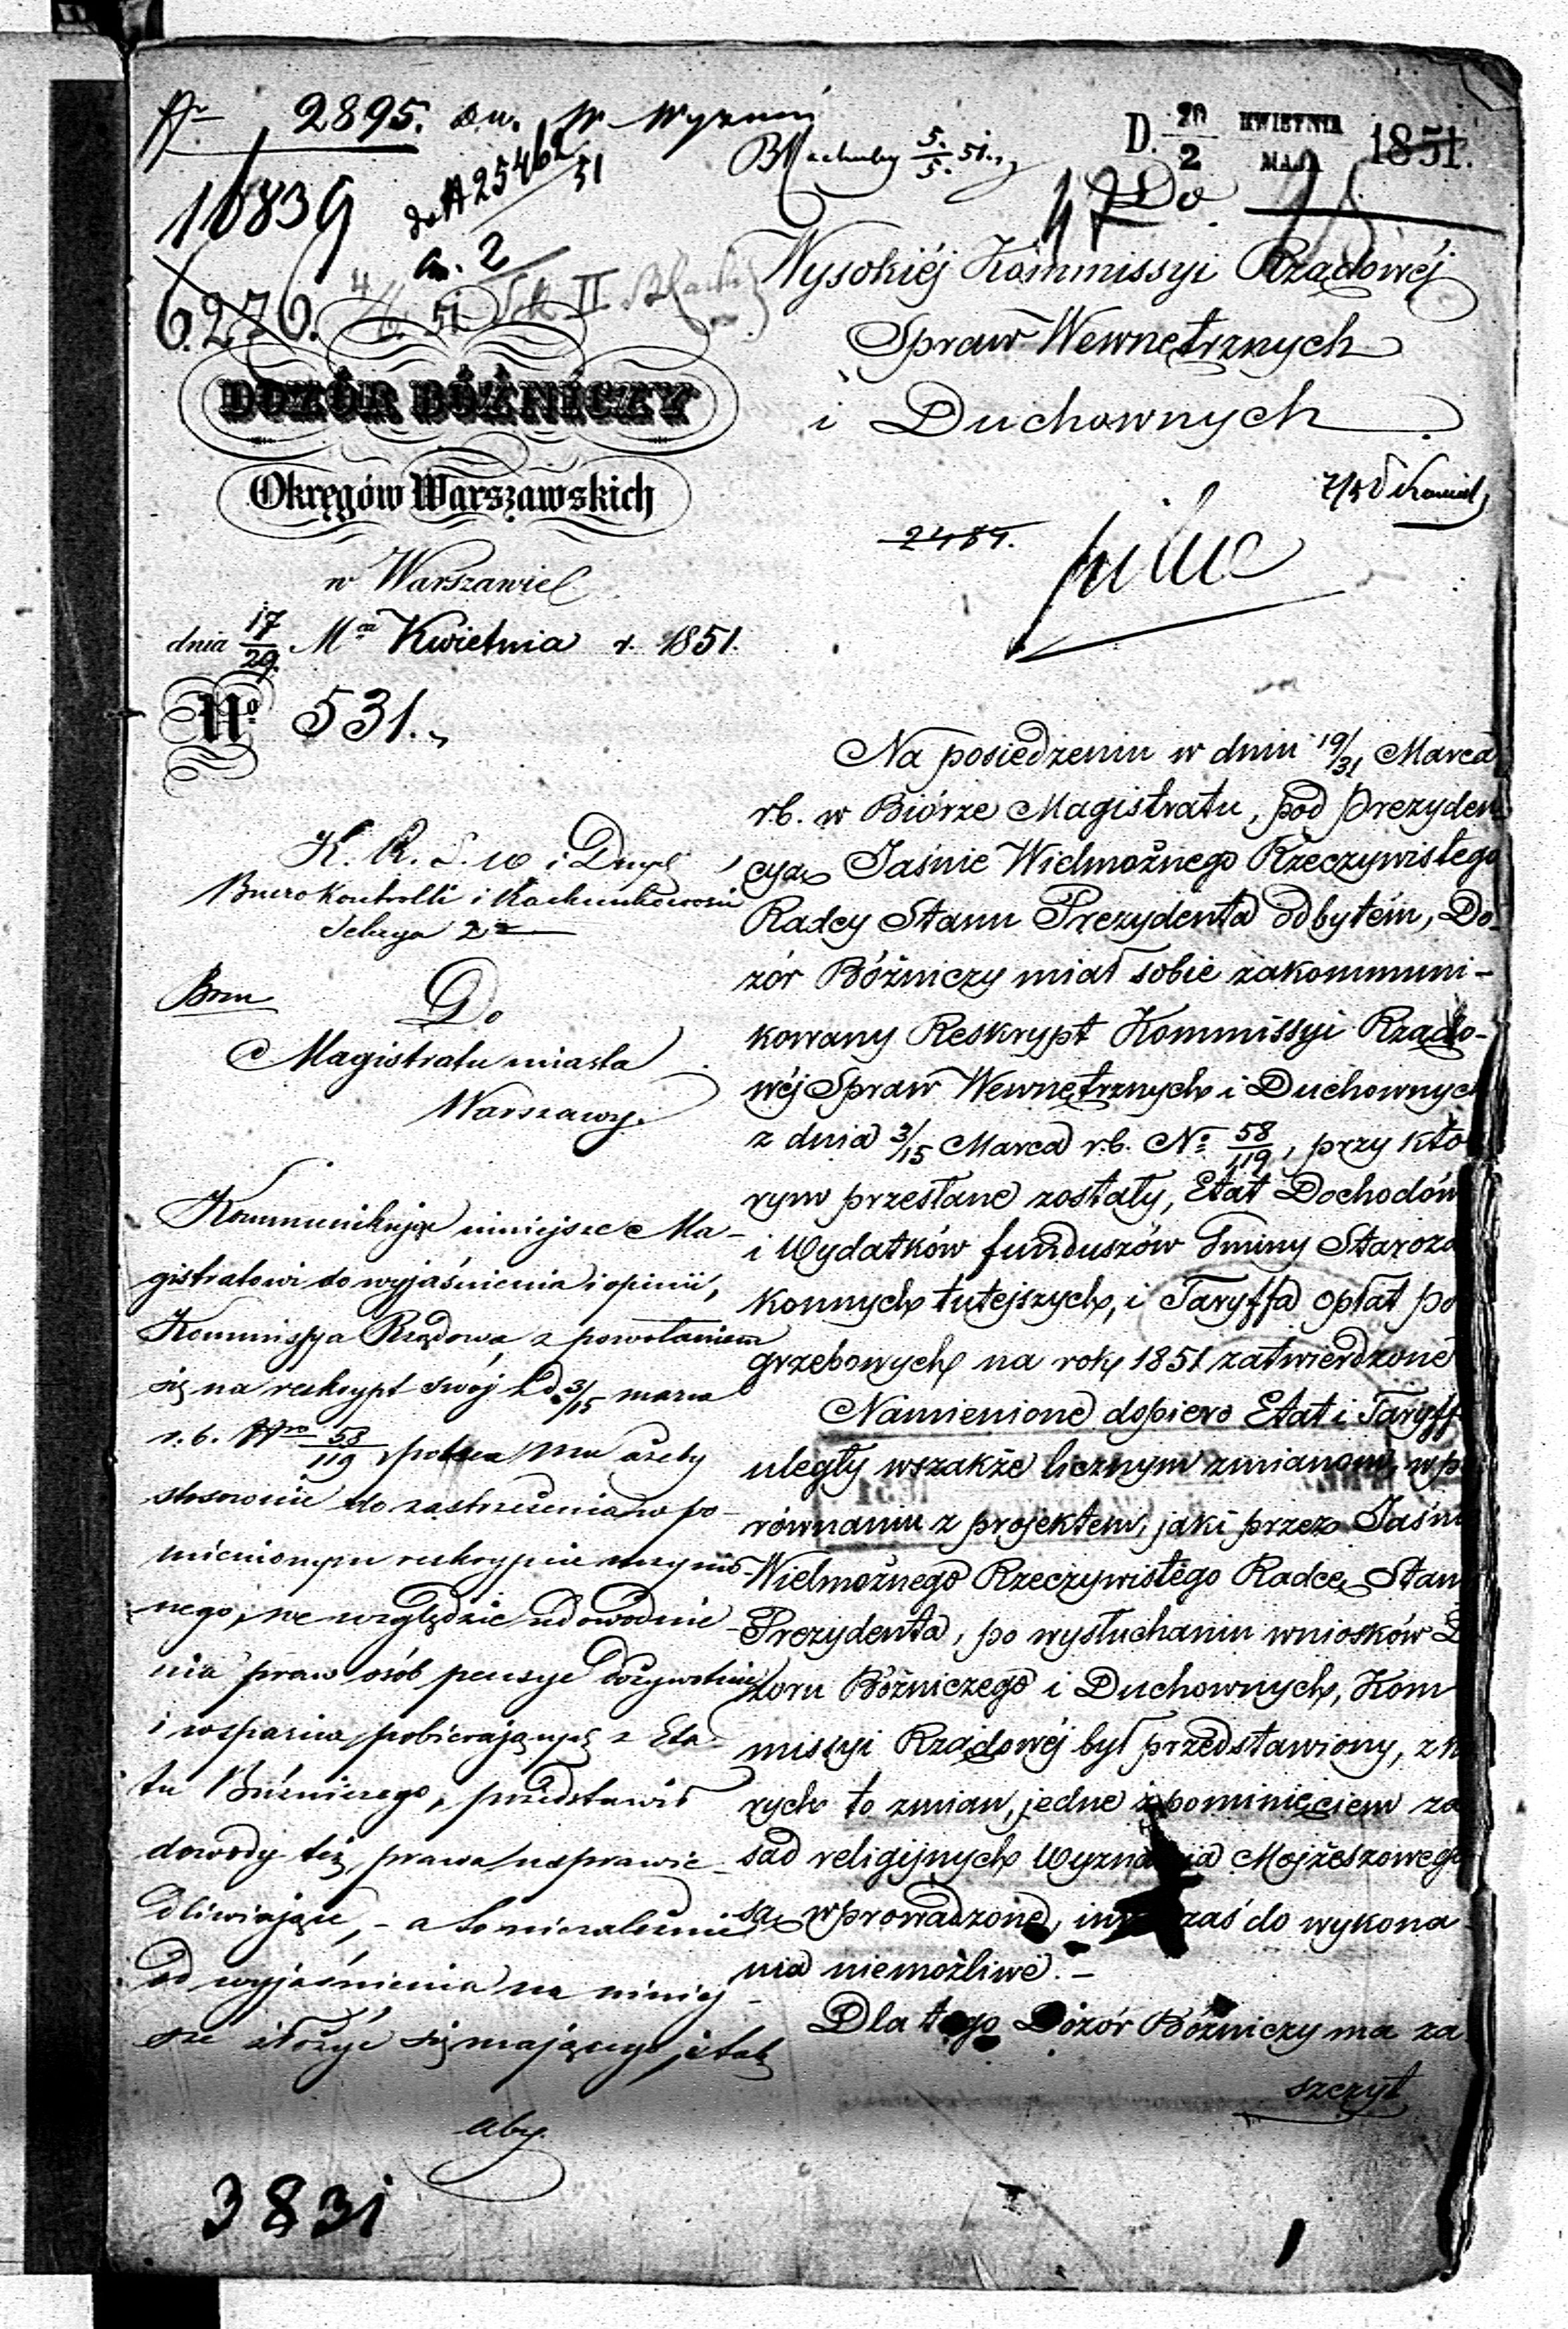 2895.
D. 20/2 KWIETNIA MAJA 1851.
5./5. 51.
16839
do A 25462/51
6.276.
DOZÓR BÓŻNICZY
Okręgów Warszawskich
w Warszawie
dnia 17/29 Mca Kwietnia r. 1851.
No 531.
Do
Wysokiéj Kommissyi Rządowéj
Spraw Wewnętrznych
i Duchownych
pilne
K. R. S. W i Duch
Biuro Kontrolli i Rachunkowości
Sekcya 2a
Do
Magistratu miasta
Warszawy.
Kommunikując niniejsze Ma-
gistratowi do wyjaśnienia i opinii,
Kommissya Rządowa z powołaniem
się na reskrypt swój z d. 3/15 marca
r. b. Nro 58/119, poleca Mu ażeby
stosownie do zastrzeżenia w po-
mienionym reskrypcie uczynio-
nego, we względzie udowodnie-
nia praw osób pensye dożywotnie
i wsparcia pobierających z Eta-
tu Bóźniczego, przedstawił
dowody też prawa usprawie-
dliwiające, - a to niezależnie
od wyjaśnienia na niniej-
sze złożyć się mającego, i tak
aby
3831
Na posiedzeniu w dniu 19/31 Marca
r.b. w Biórze Magistratu, pod Prezyden
cyą Jaśnie Wielmożnego Rzeczywistego
Radcy Stanu Prezydenta odbytém, Do-
zór Bóżniczy miał sobie zakommuni-
kowany Reskrypt Kommissyi Rządo-
wéj Spraw Wewnętrznych i Duchownyc
z dnia 3/15 Marca r.b. No 58/119, przy któ
rym przesłane zostały, Etat Dochodów
i Wydatków funduszów Gminy Staroza
konnych tutejszych, i Taryffa opłat po
grzebowych na rok 1851 zatwierdzone
Namienione dopiero Etat i Taryff
uległy wszakże licznym zmianom, w po
równaniu z projektem, jaki przez Jaśni
Wielmożnego Rzeczywistego Radcę Stan
Prezydenta, po wysłuchaniu wniosków D
zoru Bóżniczego i Duchownych, Kom
missyi Rządowéj był przedstawiony, z k
rych to zmian, jedne z pominięciem za
sad religijnych Wyznania Mojżeszowego
są wprowadzone, inne zaś do wykona
nia niemożliwe. -
Dla tego Dozór Bóżniczy ma za
szczyt
1